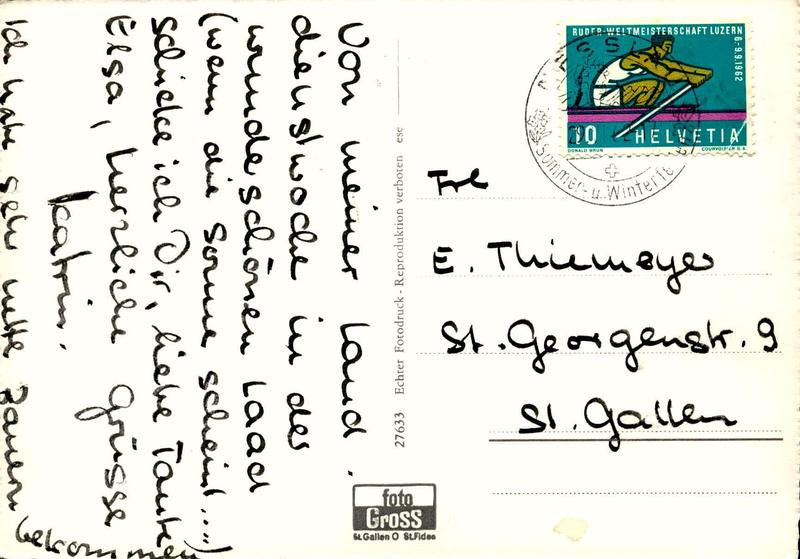 Von meiner Land.
dienstwoche in der
wunderschönen Laad
(wenn die Sonne scheint...)
schicke ich Dir, liebe Tante
Elsa, herzliche Grüsse
Katrin.
Ich habe sehr nette Bauern bekommen
27633 Echter Fotodruck - Reproduktion verboten ese
foto
Gross
St.Gallen O St.Fiden
RUDER-WELTMEISTERSCHAFT LUZERN
6.-9.9.1962
10 HELVETIA
DONALD BRUN COURVOISIER S.A.
NESSL
Sommer- u. Winterfe
Frl
E. Thiemeyer
St. Georgenstr. 9
St. Gallen